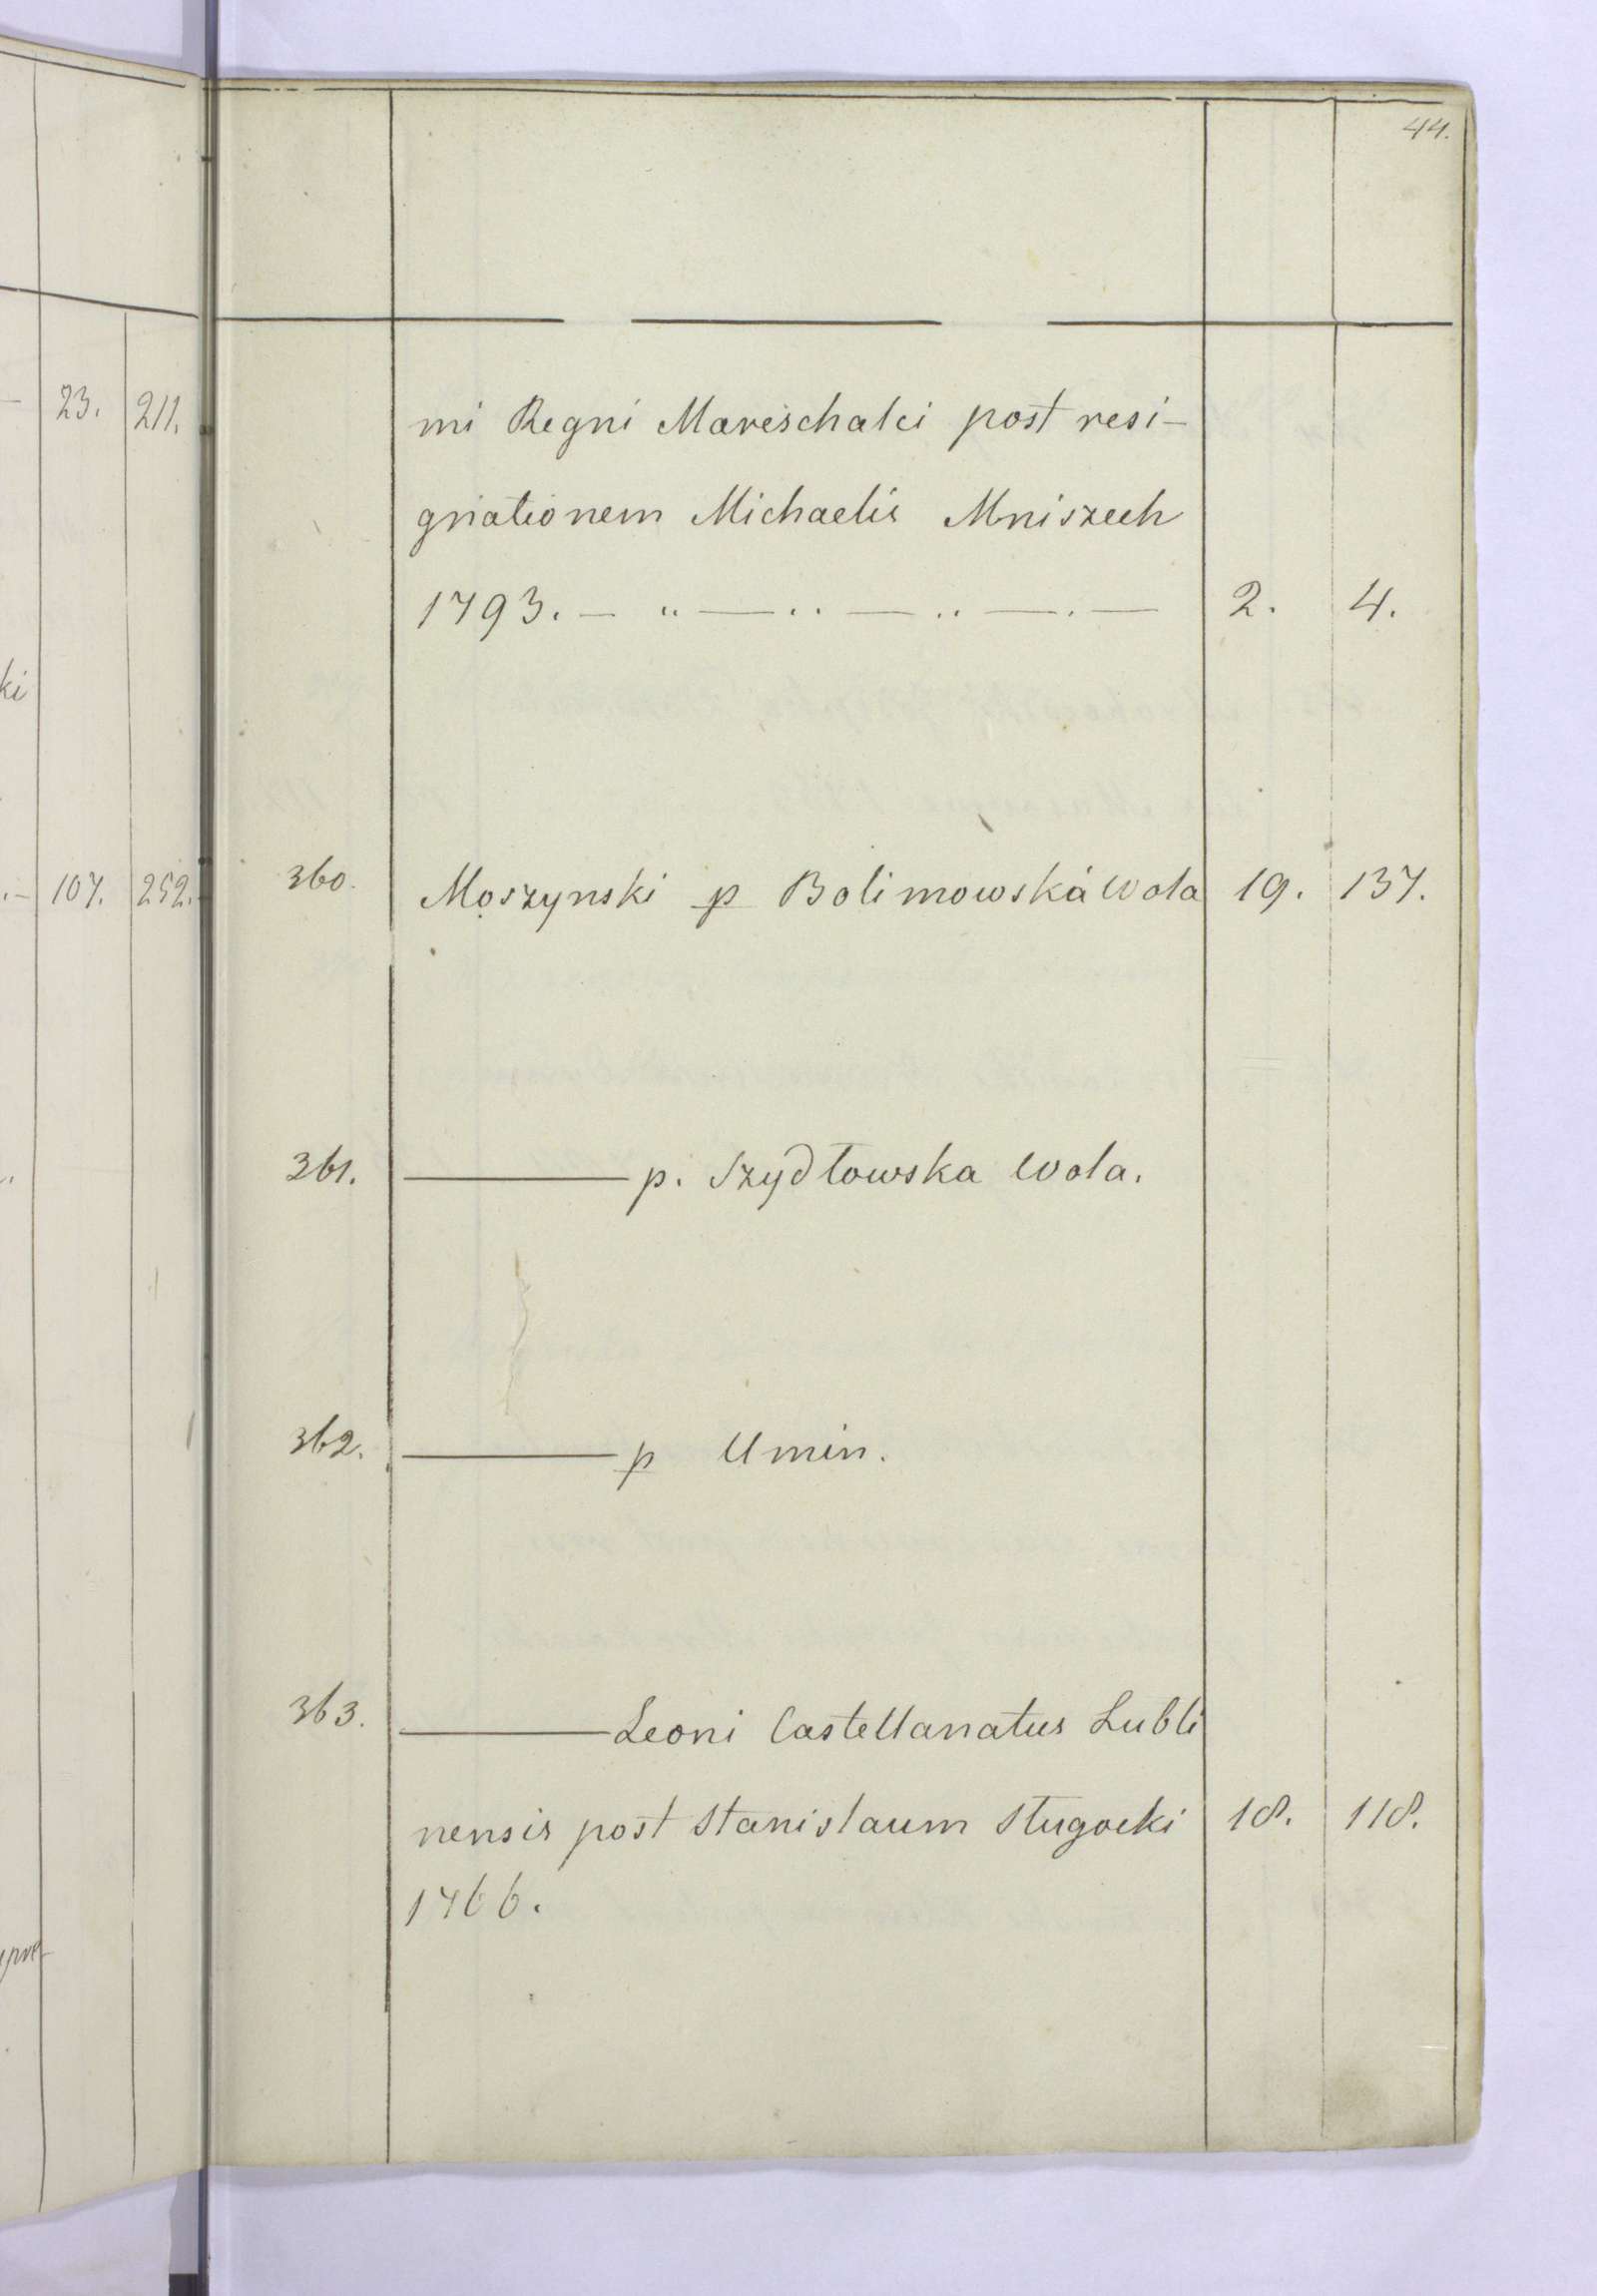 44.
23. 211.
mi Regni Mareschalci post resi-
gnationem Michaelis Mniszech
1793. — " — .. — .. — . — 2. 4.
ki
107. 252.
360. Moszynski p Bolimowska Wola 19. 137.
361. ——— p. Szydłowska Wola.
362. ——— p Umin.
363. ——— Leoni Castellanatus Lubli
nensis post Stanislaum Sługocki 18. 118.
1766.